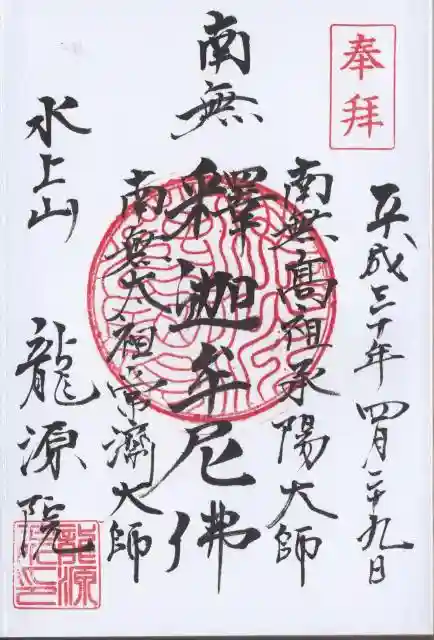 奉拝
平成三十年四月二十九日
南無高祖承陽大師
南無釋迦牟尼佛
南無太祖常濟大師
水上山
龍源院
龍源院印